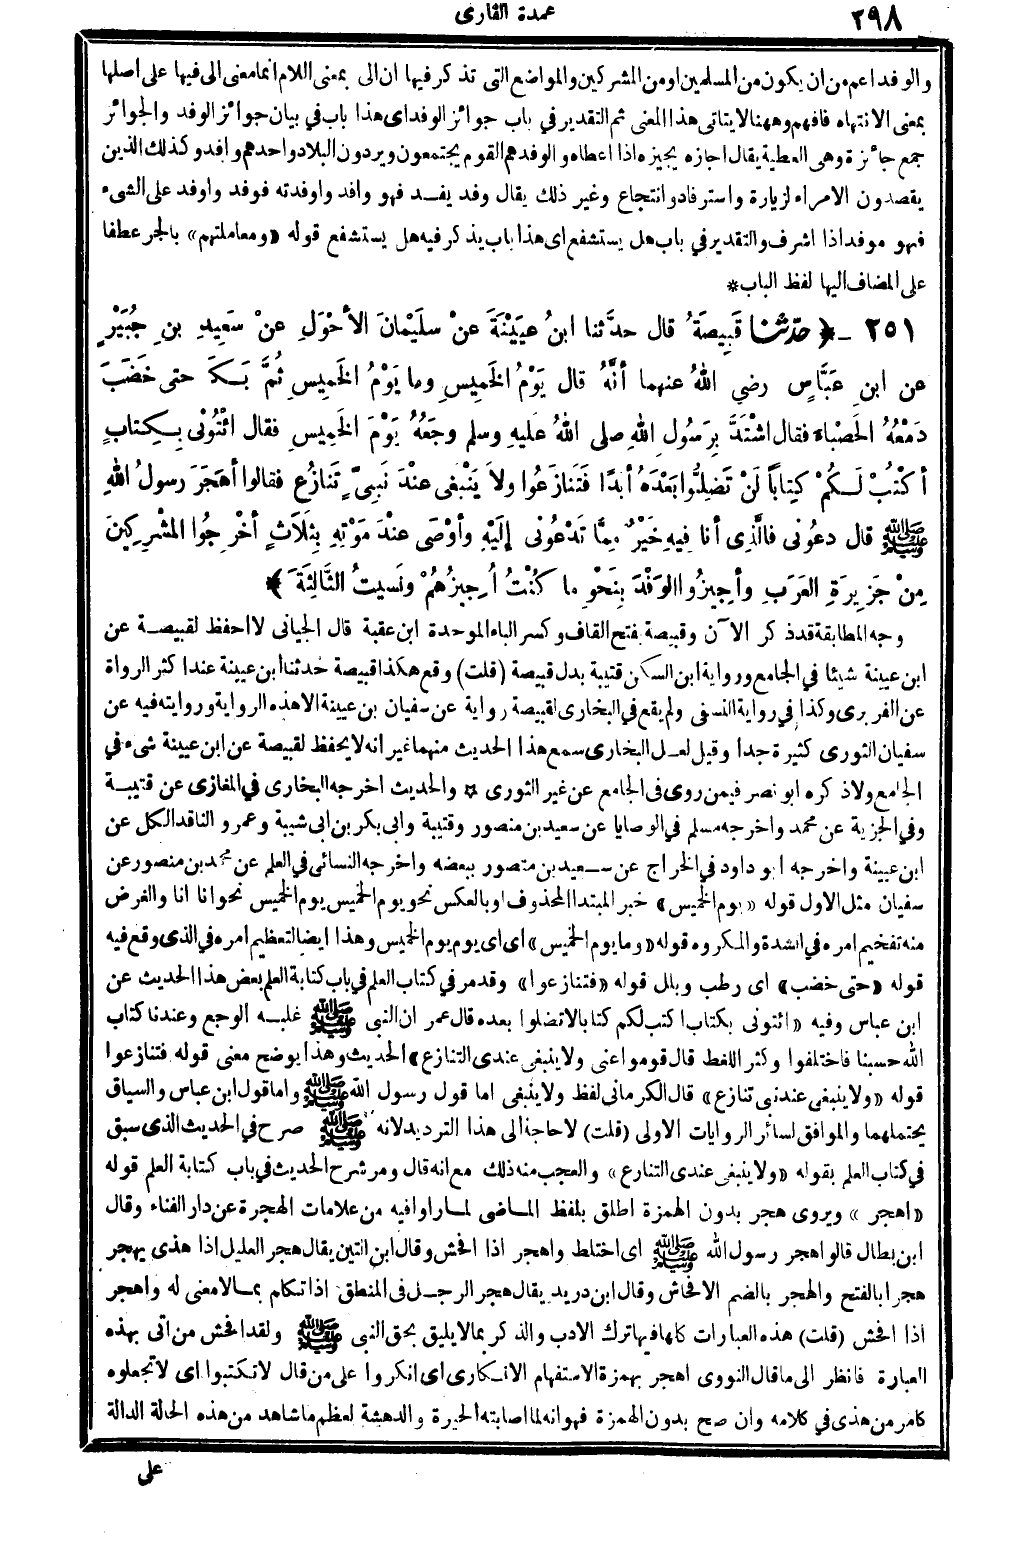 ٢٩٨
عمدة القارى
والوفد اعم من ان يكون من المسلمين او من المشركين والمواضع التى تذكر فيها ان الى بمعنى اللام انما معنى الى فيها على اصلها
بمعنى الانتهاء فافهم وههنا لا يتاتى هذا المعنى ثم التقدير في باب جوائز الوفد اى هذا باب في بيان جوائز الوفد والجوائز
جمع جائزة وهى العطية يقال اجازه يجيزه اذا اعطاه والوفد هم القوم يجتمعون ويردون البلاد واحدهم وافد وكذلك الذين
يقصدون الامراء لزيارة واسترفاد وانتجاع وغير ذلك يقال وفد يفد فهو وافد واوفدته فوفد واوفد على الشىء
فهو موفد اذا اشرف والتقدير في باب هل يستشفع اى هذا باب يذكر فيه هل يستشفع قوله «ومعاملتهم» بالجر عطفا
على المضاف اليها لفظ الباب*
٢٥١ - ﴿ حدّثنا قَبِيصَةُ قال حدَّثنا ابنُ عيَيْنَةَ عنْ سليْمانَ الأحْوَلِ عنْ سعَيدِ بنِ جُبَيْرٍ
عن ابنِ عبَّاسٍ رضي اللهُ عنهما أنَّهُ قال يَوْمُ الخَمِيسِ وما يَوْمُ الخَمِيسِ ثُمَّ بَكَى حتى خَضَبَ
دَمْعُهُ الحَصْباءَ فقال اشْتَدَّ بِرَسُولِ اللهِ صلى اللهُ عليهِ وسلم وجَعُهُ يَوْمَ الخَمِيسِ فقال ائْتُونى بِكِتابٍ
أكْتُبْ لَكُمْ كِتابًا لَنْ تَضِلُّوا بَعْدَهُ أبَدًا فَتَنازَعُوا ولاَ يَنْبَغى عنْدَ نَبِيٍّ تَنازُعٌ فقالوا أهَجَرَ رسولُ اللهِ
ﷺ قال دعُونى فالَّذِى أنا فِيهِ خَيْرٌ مِمَّا تَدْعُونى إلَيْهِ وأوْصَى عنْدَ مَوْتِهِ بِثَلاَثٍ أخْرِجُوا المُشْرِكِينَ
مِنْ جَزِيرَةِ العَرَبِ وأجِيزُوا الوَفْدَ بِنَحْوِ ما كُنْتُ أُجِيزُهُمْ ونَسيتُ الثَّالِثَةَ ﴾*
وجه المطابقة قد ذكر الآن وقبيصة بفتح القاف وكسر الباء الموحدة ابن عقبة قال الجيانى لا احفظ لقبيصة عن
ابن عيينة شيئا في الجامع ورواية ابن السكن قتيبة بدل قبيصة (قلت) وقع هكذا قبيصة حدثنا ابن عيينة عند اكثر الرواة
عن الفربرى وكذا في رواية النسفى ولم يقع في البخارى لقبيصة رواية عن سفيان بن عيينة الا هذه الرواية وروايته فيه عن
سفيان الثورى كثيرة جدا وقيل لعل البخارى سمع هذا الحديث منهما غير انه لا يحفظ لقبيصة عن ابن عيينة شىء في
الجامع ولا ذكره ابو نصر فيمن روى فى الجامع عن غير الثورى * والحديث اخرجه البخارى في المغازى عن قتيبة
وفي الجزية عن محمد واخرجه مسلم في الوصايا عن سعيد بن منصور وقتيبة وابى بكر بن ابى شيبة وعمرو الناقد الكل عن
ابن عيينة واخرجه ابو داود في الخراج عن سعيد بن منصور ببعضه واخرجه النسائى في العلم عن محمد بن منصور عن
سفيان مثل الاول قوله «يوم الخميس» خبر المبتدا المحذوف او بالعكس نحو يوم الخميس يوم الخميس نحو انا انا والغرض
منه تفخيم امره في الشدة والمكروه قوله «وما يوم الخميس» اى اى يوم يوم الخميس وهذا ايضا لتعظيم امره في الذى وقع فيه
قوله «حتى خضب» اى رطب وبلل قوله «فتنازعوا» وقد مر في كتاب العلم في باب كتابة العلم بعض هذا الحديث عن
ابن عباس وفيه «ائتونى بكتاب اكتب لكم كتابا لا تضلوا بعده قال عمر ان النبى ﷺ غلبه الوجع وعندنا كتاب
الله حسبنا فاختلفوا وكثر اللغط قال قوموا عنى ولا ينبغى عندى التنازع» الحديث وهذا يوضح معنى قوله فتنازعوا
قوله «ولا ينبغى عند نبى تنازع» قال الكرمانى لفظ ولا ينبغى اما قول رسول الله ﷺ واما قول ابن عباس والسياق
يحتملهما والموافق لسائر الروايات الاولى (قلت) لا حاجة الى هذا الترديد لانه ﷺ صرح في الحديث الذى سبق
في كتاب العلم بقوله «ولا ينبغى عندى التنازع» والعجب منه ذلك مع انه قال ومر شرح الحديث في باب كتابة العلم قوله
«اهجر» ويروى هجر بدون الهمزة اطلق بلفظ الماضى لما راوا فيه من علامات الهجرة عن دار الفناء وقال
ابن بطال قالوا هجر رسول الله ﷺ اى اختلط واهجر اذا افحش وقال ابن التين يقال هجر العليل اذا هذى يهجر
هجرا بالفتح والهجر بالضم الافحاش وقال ابن دريد يقال هجر الرجل فى المنطق اذا تكلم بما لا معنى له واهجر
اذا افحش (قلت) هذه العبارات كلها فيها ترك الادب والذكر بما لا يليق بحق النبى ﷺ ولقد افحش من اتى بهذه
العبارة فانظر الى ما قال النووى اهجر بهمزة الاستفهام الانكارى اى انكروا على من قال لا تكتبوا اى لا تجعلوه
كامر من هذى في كلامه وان صح بدون الهمزة فهو انه لما اصابته الحيرة والدهشة لعظم ما شاهد من هذه الحالة الدالة
على